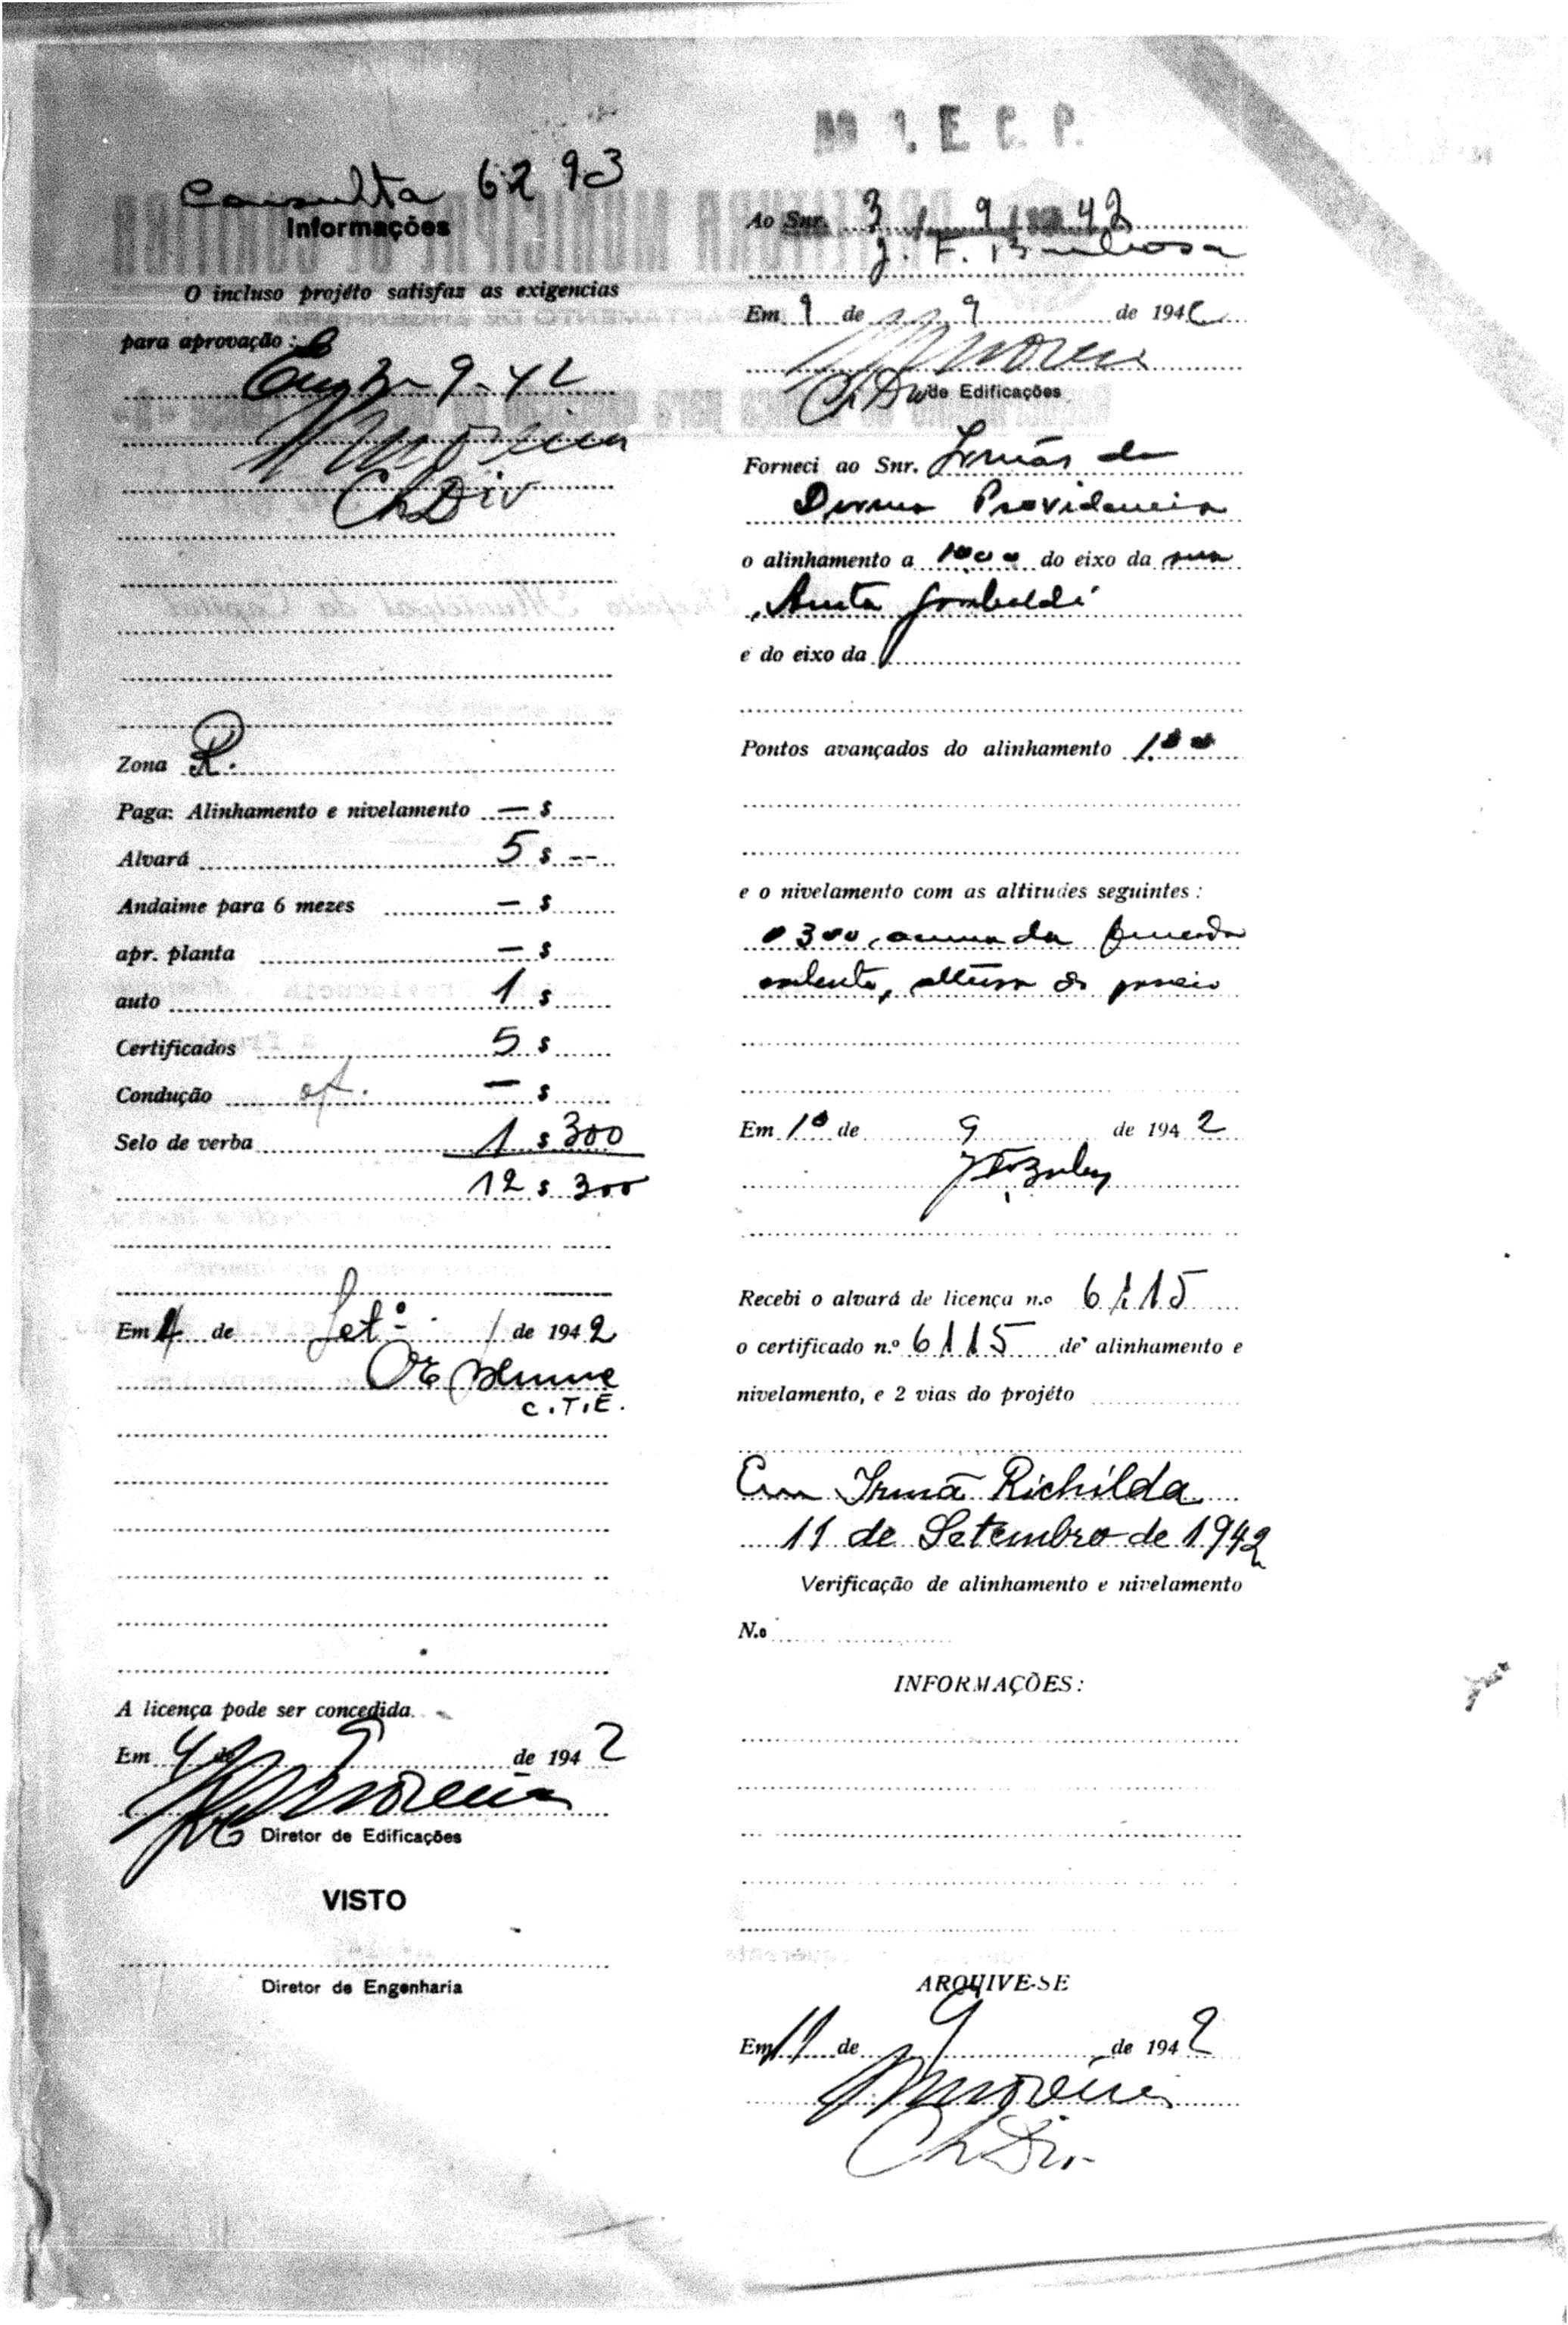 Consulta 6293
Informações
O incluso projéto satisfaz as exigencias
para aprovação:
Em 3-9-42
Moreira
Ch Div
Zona R.
Paga: Alinhamento e nivelamento — $
Alvará 5 $ --
Andaime para 6 mezes — $
apr. planta — $
auto 1 $
Certificados 5 $
Condução — $
Selo de verba 1 $ 300
12 $ 300
Em 4 de Setº de 1942
C.T.E.
A licença pode ser concedida.
Em 4 de 9 de 1942
Moreira
Diretor de Edificações
VISTO
Diretor de Engenharia
E. C. P.
Ao Snr. 3 9 42
J. F. Barbosa
Em 9 de 9 de 194
Moreira
Ch Div de Edificações
Forneci ao Snr. Irmãs da
Divina Providencia
o alinhamento a do eixo da rua
Anita Garibaldi
e do eixo da
Pontos avançados do alinhamento
e o nivelamento com as altitudes seguintes:
300 acima da
altura do passeio
Em 10 de 9 de 1942
Recebi o alvará de licença n.o 6115
o certificado n.º 6115 de alinhamento e
nivelamento, e 2 vias do projéto
Em Irmã Richilda
11 de Setembro de 1942
Verificação de alinhamento e nivelamento
N.o
INFORMAÇÕES:
ARQUIVE-SE
Em 11 de 9 de 1942
Moreira
Ch Div.